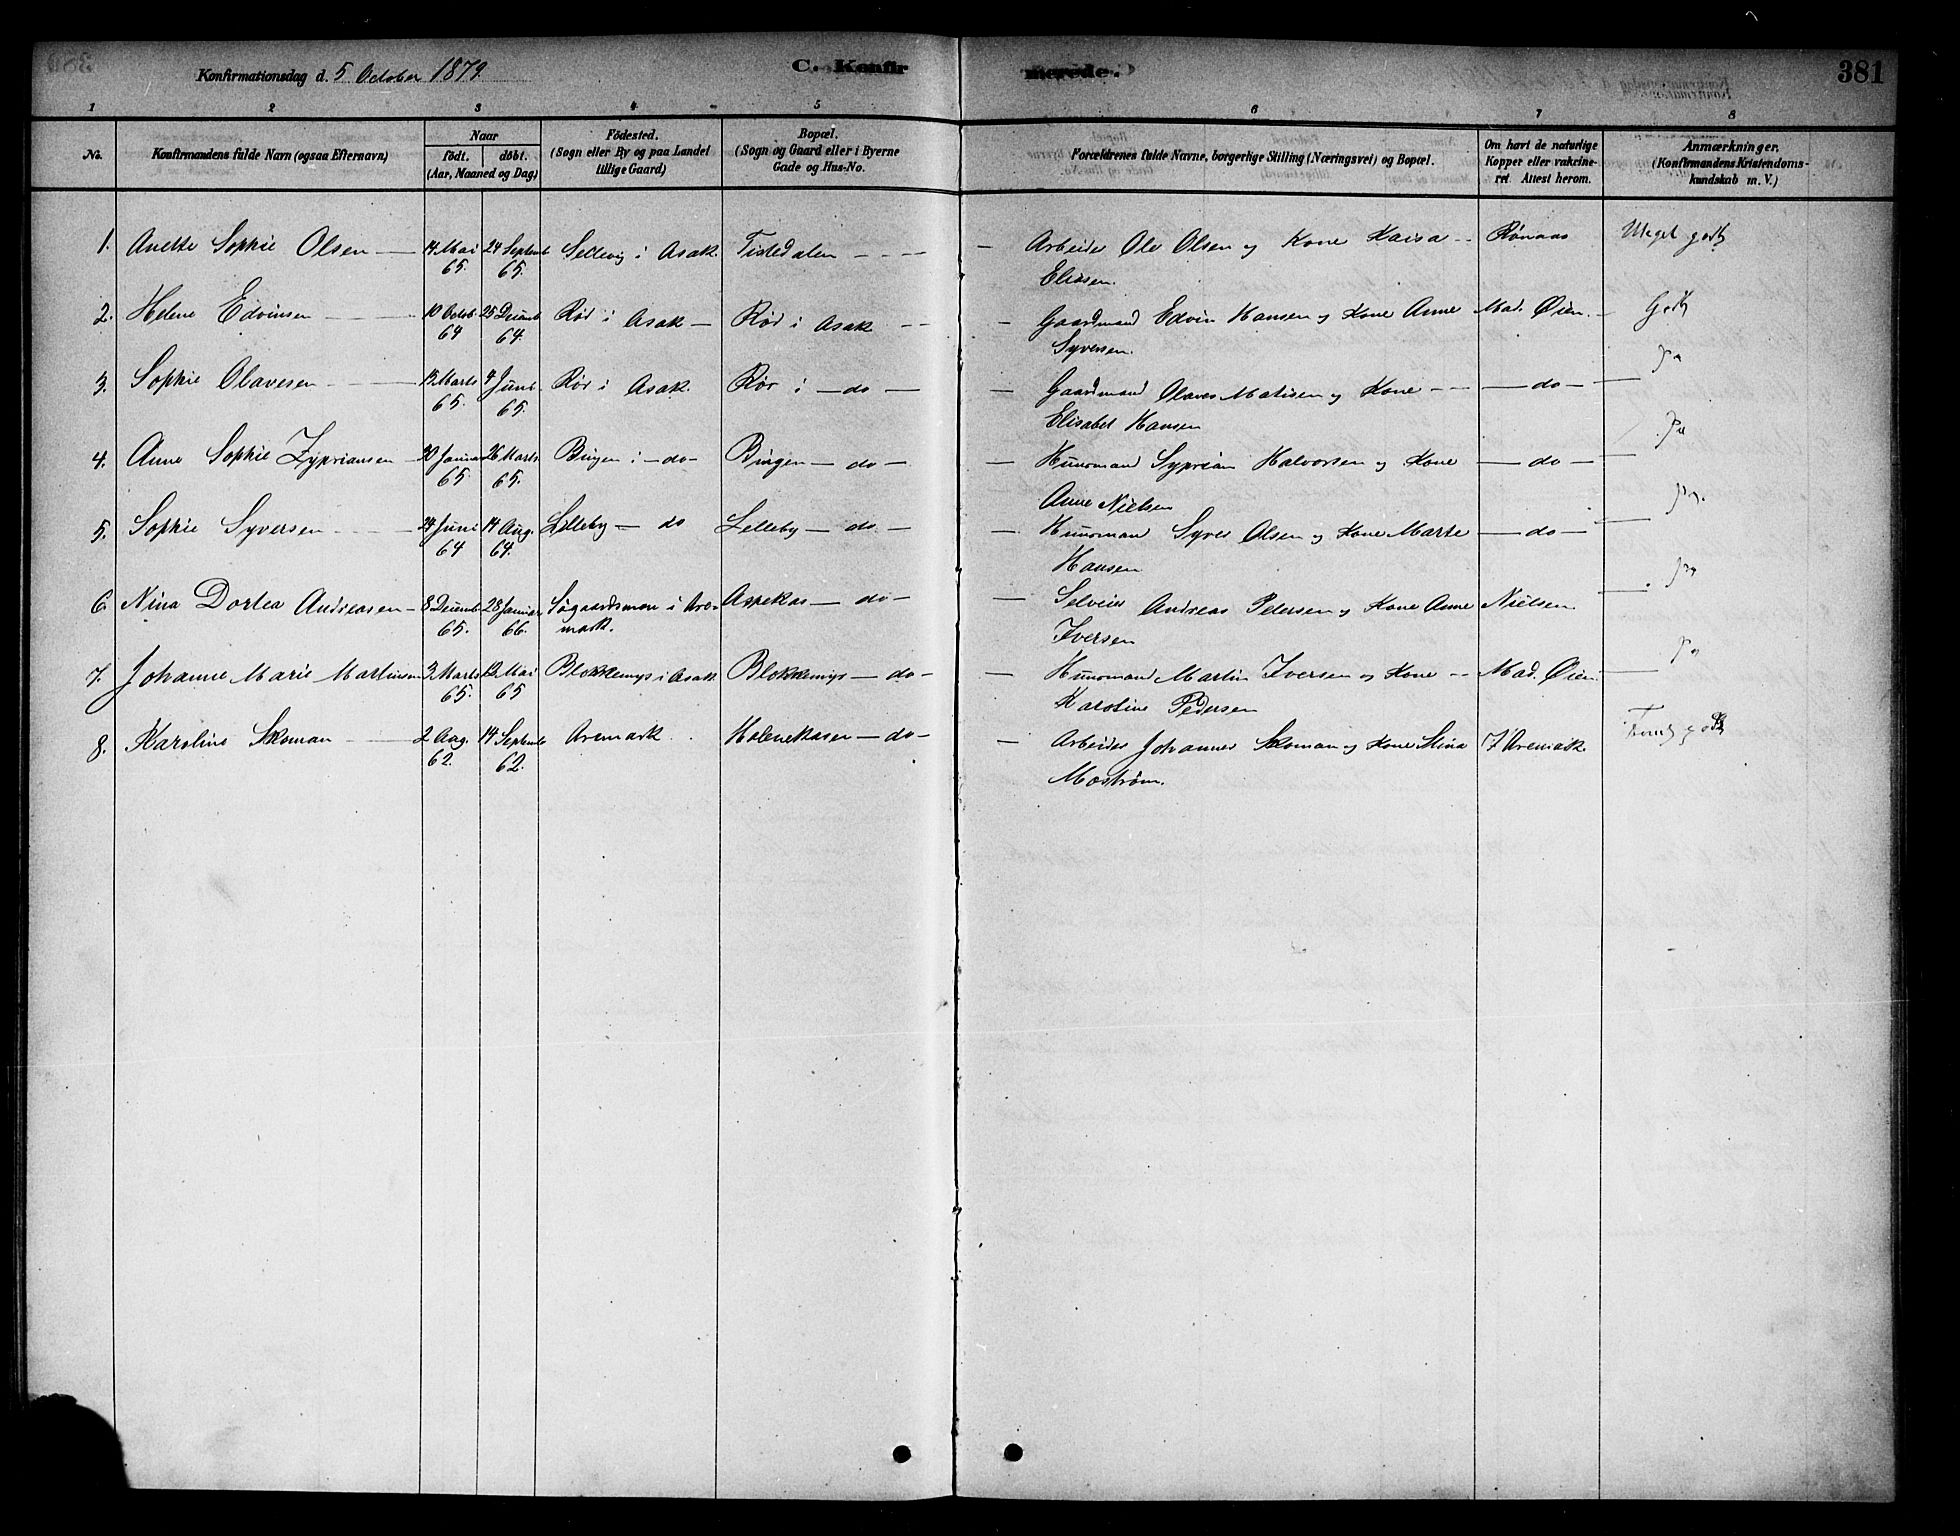 Konfirmationsdag d. 5 October 1879. C. Konfirmerede. 381
1 2 3 4 5 6 7 8
No. Konfirmandens fulde Navn (ogsaa Efternavn) Naar födt. döbt. (Aar, Maaned og Dag) Födested. (Sogn eller By og paa Landet tillige Gaard) Bopæl. (Sogn og Gaard eller i Byerne Gade og Hus-No. Forældrenes fulde Navne, borgerlige Stilling (Næringsvei) og Bopæl. Om havt de naturlige Kopper eller vakcineret. Attest herom. Anmærkninger. (Konfirmandens Kristendomskundskab m. V.)
1. Anette Sophie Olsen — 14 Mai 65. 24 Septemb 65. Sellevig i Asak. Tistedalen — Arbeider Ole Olsen og Kone Kaisa Eliasen. Rønaas Meget godt
2. Helene Edvinsen 10 Octob 64 25 Decemb 64. Rød i Asak — Rød i Asak — Gaardmand Edvin Hansen og Kone Anne Syversen. Mad. Øien. — Godt
3. Sophie Olavesen 15 Marts 65. 4 Juni 65. Rør i Asak Rør i — do — Gaardmand Olaves Matisen og Kone Elisabet Hansen — do —
4. Anne Sophie Zypriansen 30 Januar 65. 26 Marts 65. Bingen i — do — Bingen — do — Huusmand Syprian Halvorsen og Kone Anne Nielsen — do —
5. Sophie Syversen 24 Juni 64 14 Aug. 64. Lilleby — do Lilleby — do — Huusmand Syver Olsen og Kone Marte Hansen — do —
6. Nina Dortea Andreasen — 8 Decemb 65. 28 Januar 66. i Aremark. Aspekas — do — Selveier Andreas Pedersen og Kone Anne Iversen Nielsen
7. Johanne Marie Martinsen 3 Marts 65. 12 Mai 65 Blokkemyr i Asak Blokkemyr — do — Huusmand Martin Iversen og Kone Karoline Pedersen Mad. Øien.
8. Karoline Skoman 2 Aug. 62. 14 Septemb 62. Aremark. Holenekasen — do — Arbeider Johannes Skoman og Kone Stina Mostrøm. I Aremark godt